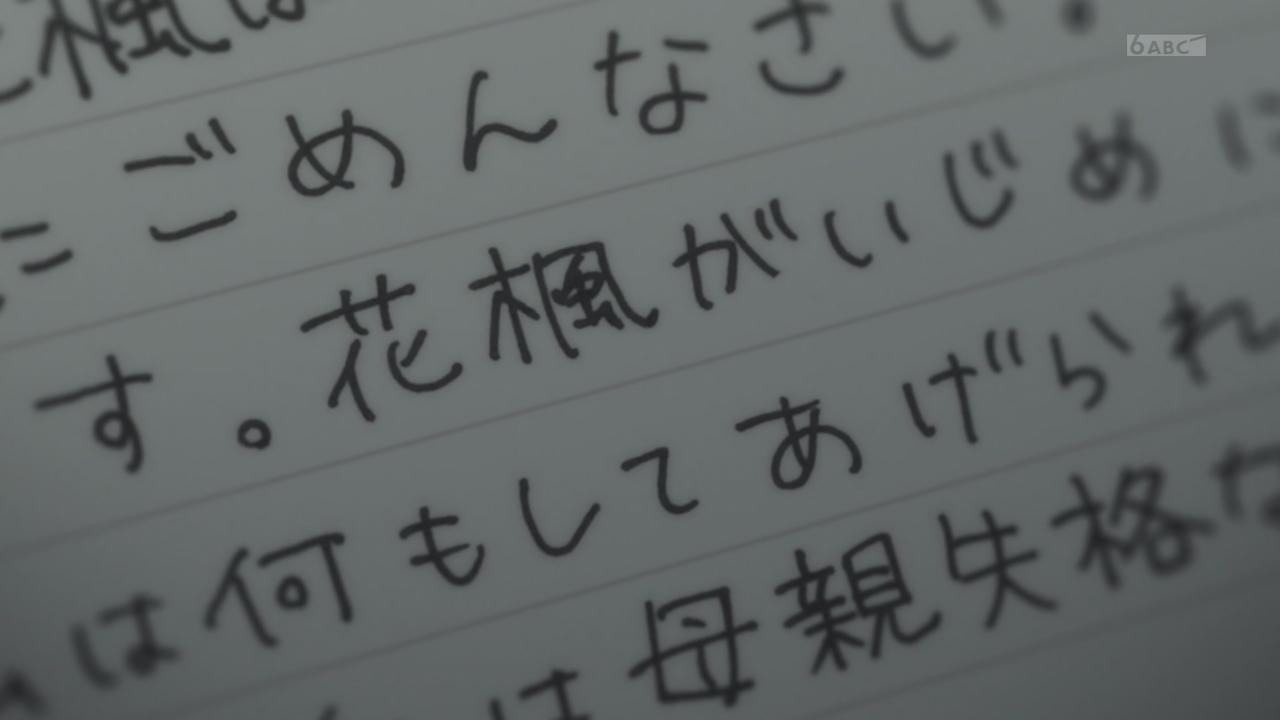 6 ABC
楓は
ごめんなさい
す。花楓がいじめに
は何もしてあげられ
は母親失格な